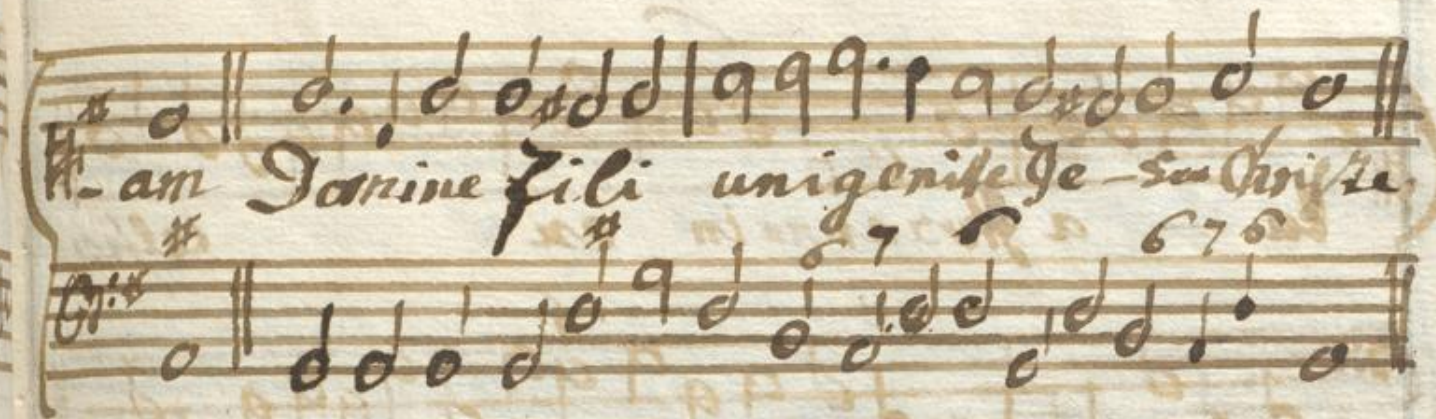 - am Domine Fili unigenite Je - su Christe
6 7 6 6 7 6